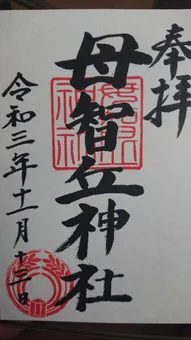 奉拝
母智丘神社
令和三年十一月十三日